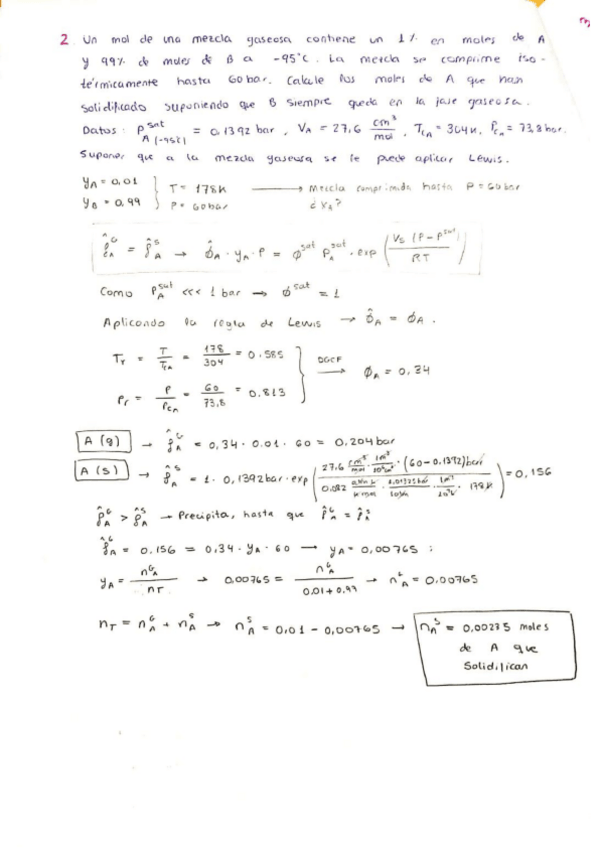 2. Un mol de una mezcla gaseosa contiene un 1% en moles de A
y 99% de moles de B a -95°C. La mezcla se comprime iso-
térmicamente hasta 60 bar. Calcule los moles de A que han
solidificado suponiendo que B siempre queda en la fase gaseosa.
Datos: P_A^sat (-95°C) = 0,1392 bar, V_A = 27,6 cm³/mol, T_CA = 304K, P_CA = 73,8 bar.
Suponer que a la mezcla gaseosa se le puede aplicar Lewis.
y_A = 0,01 } T = 178K → Mezcla comprimida hasta P = 60 bar
y_B = 0,99 } P = 60bar ¿x_A?
f̂_A^G = f̂_A^S → φ̂_A · y_A · P = φ^sat P_A^sat · exp(V_S (P - P^sat) / RT)
Como P_A^sat <<< 1 bar → φ^sat = 1
Aplicando la regla de Lewis → φ̂_A = φ_A.
T_r = T/T_CA = 178/304 = 0.585
DGCF → φ_A = 0,34
P_r = P/P_CA = 60/73,8 = 0.813
A (g) → f̂_A^G = 0,34 · 0.01 · 60 = 0,204 bar
A (s) → f̂_A^S = 1 · 0,1392 bar · exp( 27.6 · (60 - 0.1392) bar / 0.082 · 178K ) = 0,156
f̂_A^G > f̂_A^S → Precipita, hasta que f̂_A^G = f̂_A^S
f̂_A^G = 0.156 = 0.34 · y_A · 60 → y_A = 0,00765 ;
y_A = n_A^G / n_T → 0.00765 = n_A^G / 0.01 + 0.99 → n_A^G = 0,00765
n_T = n_A^G + n_A^S → n_A^S = 0,01 - 0,00765 → n_A^S = 0,00235 moles
de A que
Solidifican